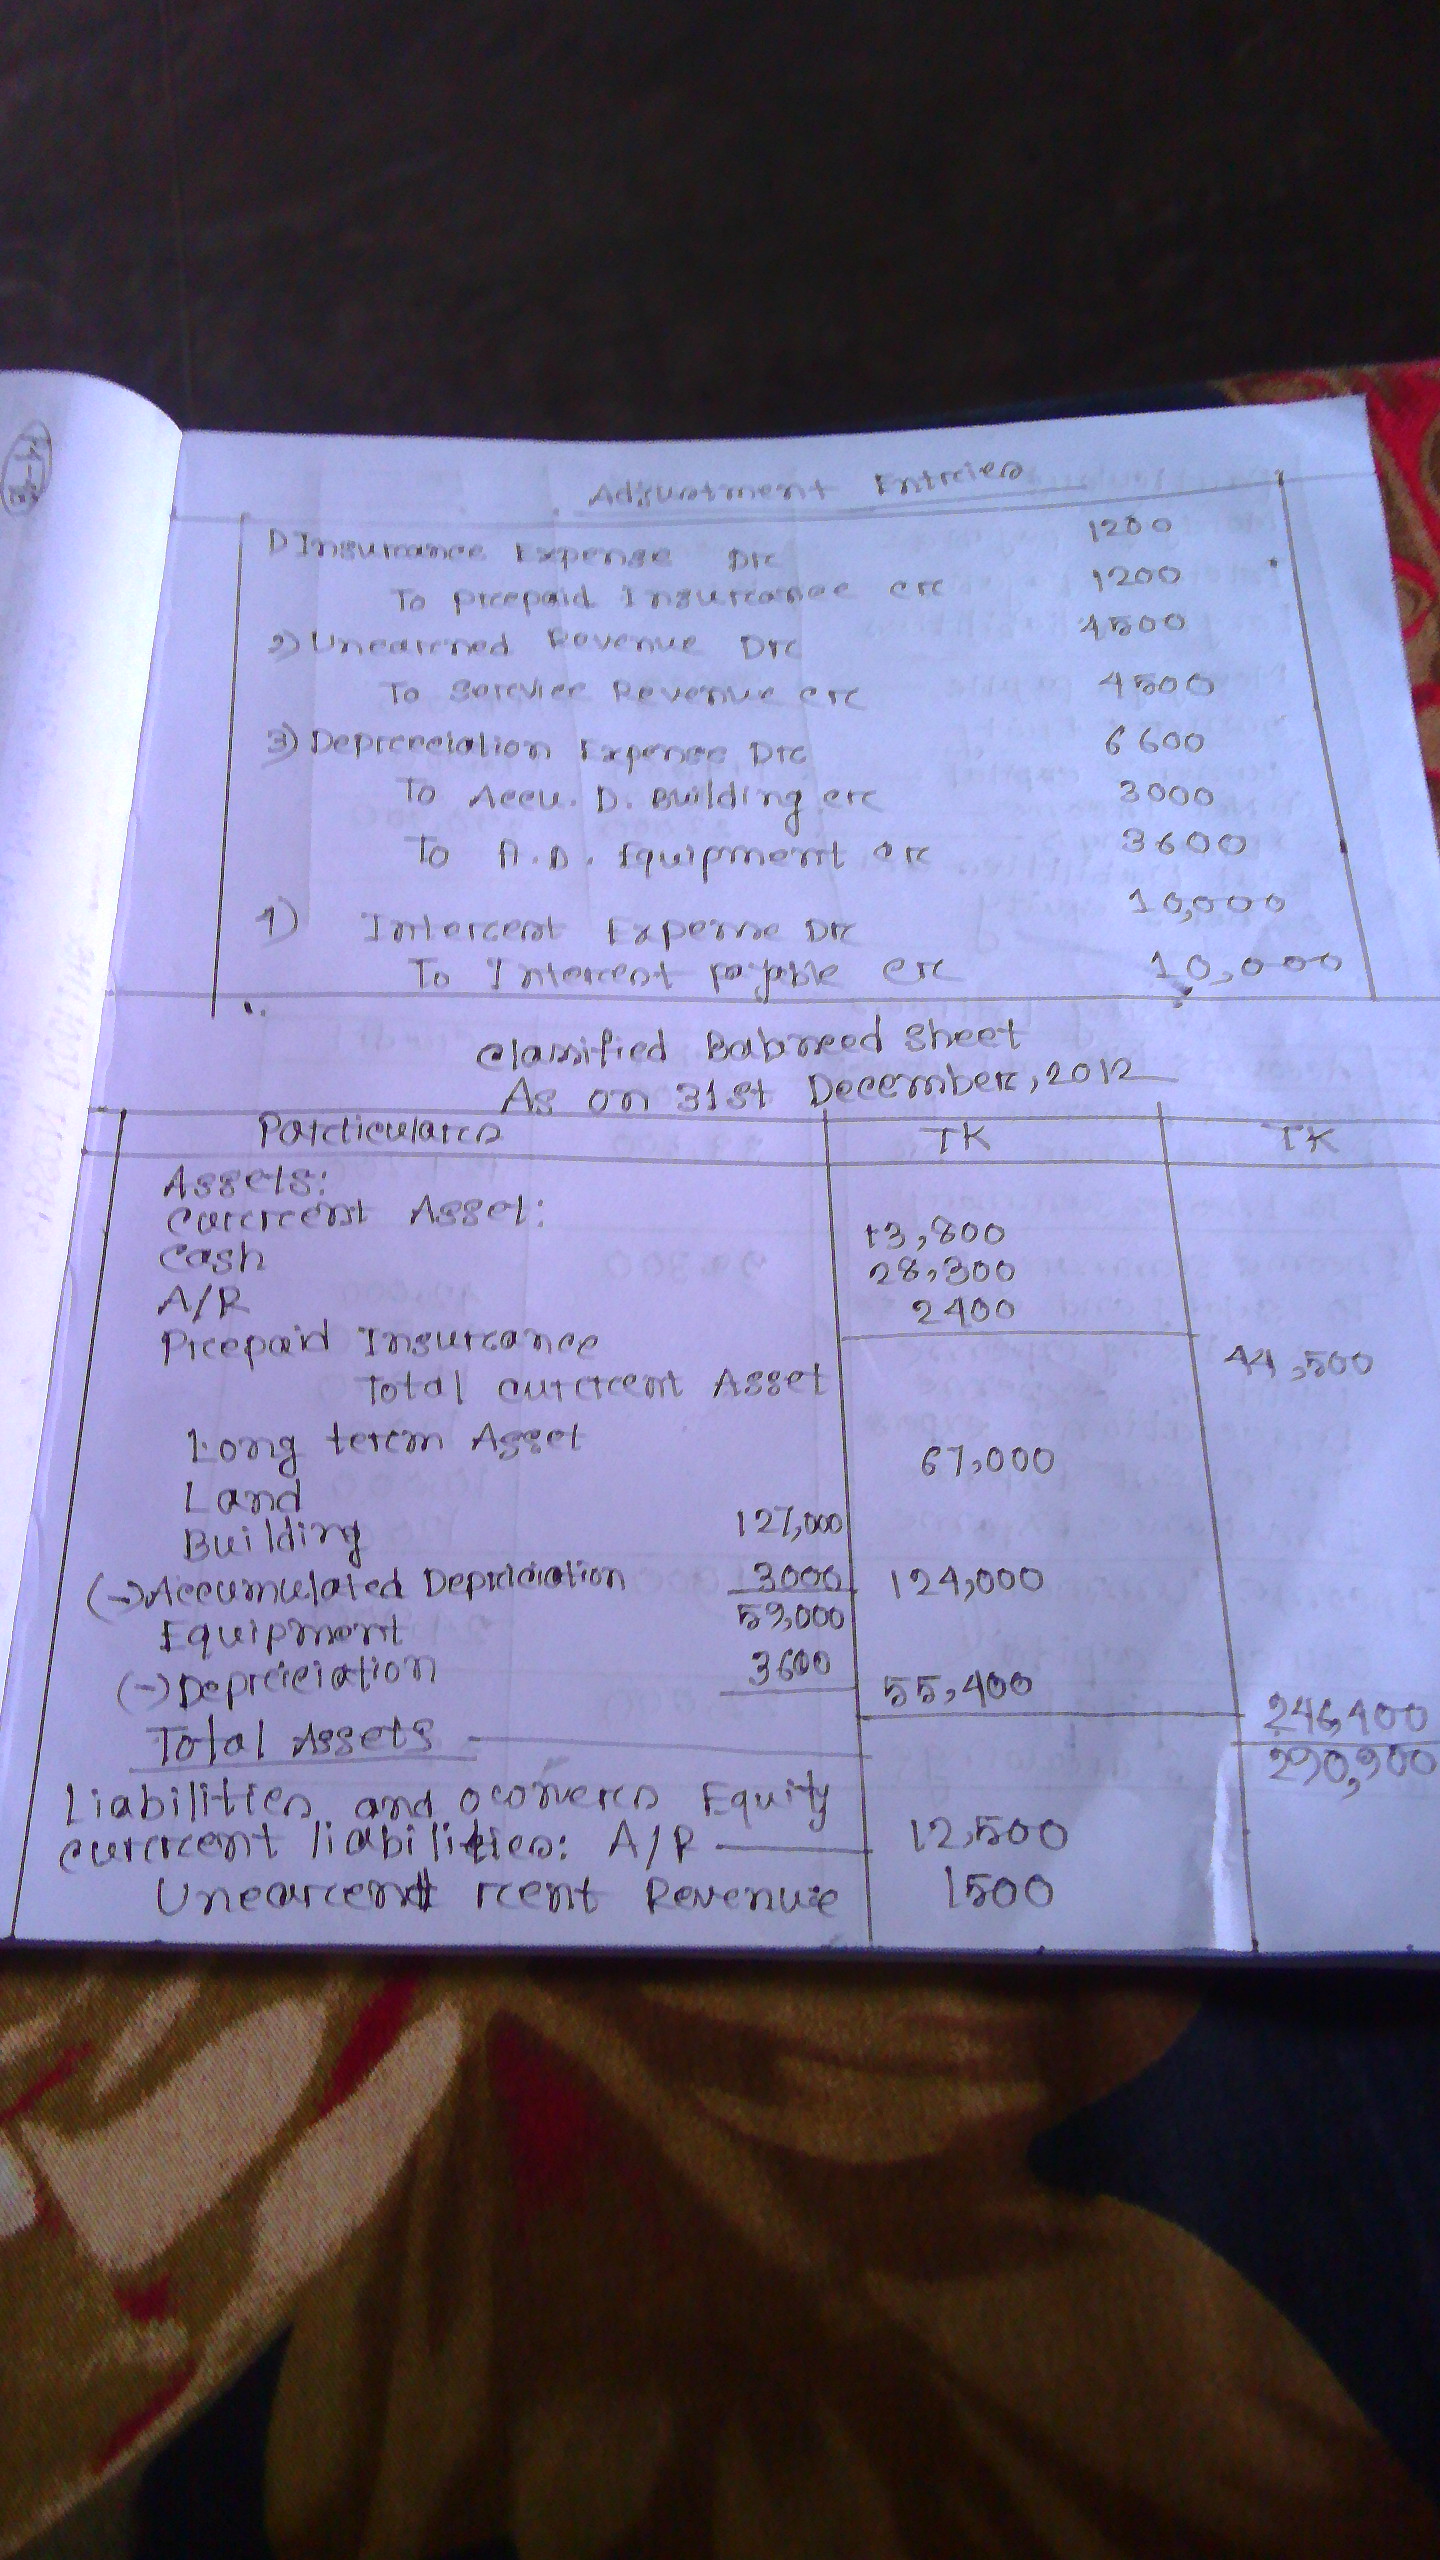 Adjustment Entries
1) Insurance Expense Dr 1200
To prepaid Insurance cr 1200
2) Unearned Revenue Dr 4500
To Service Revenue cr 4500
3) Depreciation Expense Dr 6600
To Accu. D. Building cr 3000
To A.D. Equipment cr 3600
4) Interest Expense Dr 10,000
To Interest payable cr 10,000
classified Balanced Sheet
As on 31st December, 2012
Particulars TK TK
Assets:
Current Asset:
Cash 13,800
A/R 28,300
Prepaid Insurance 2400
Total current Asset 44,500
Long term Asset
Land 67,000
Building 127,000
(-) Accumulated Depriciation 3000 124,000
Equipment 59,000
(-) Depriciation 3600 55,400
246,400
Total Assets 290,900
Liabilities and oowners Equity
current liabilities: A/P 12,500
Unearend rent Revenue 1500